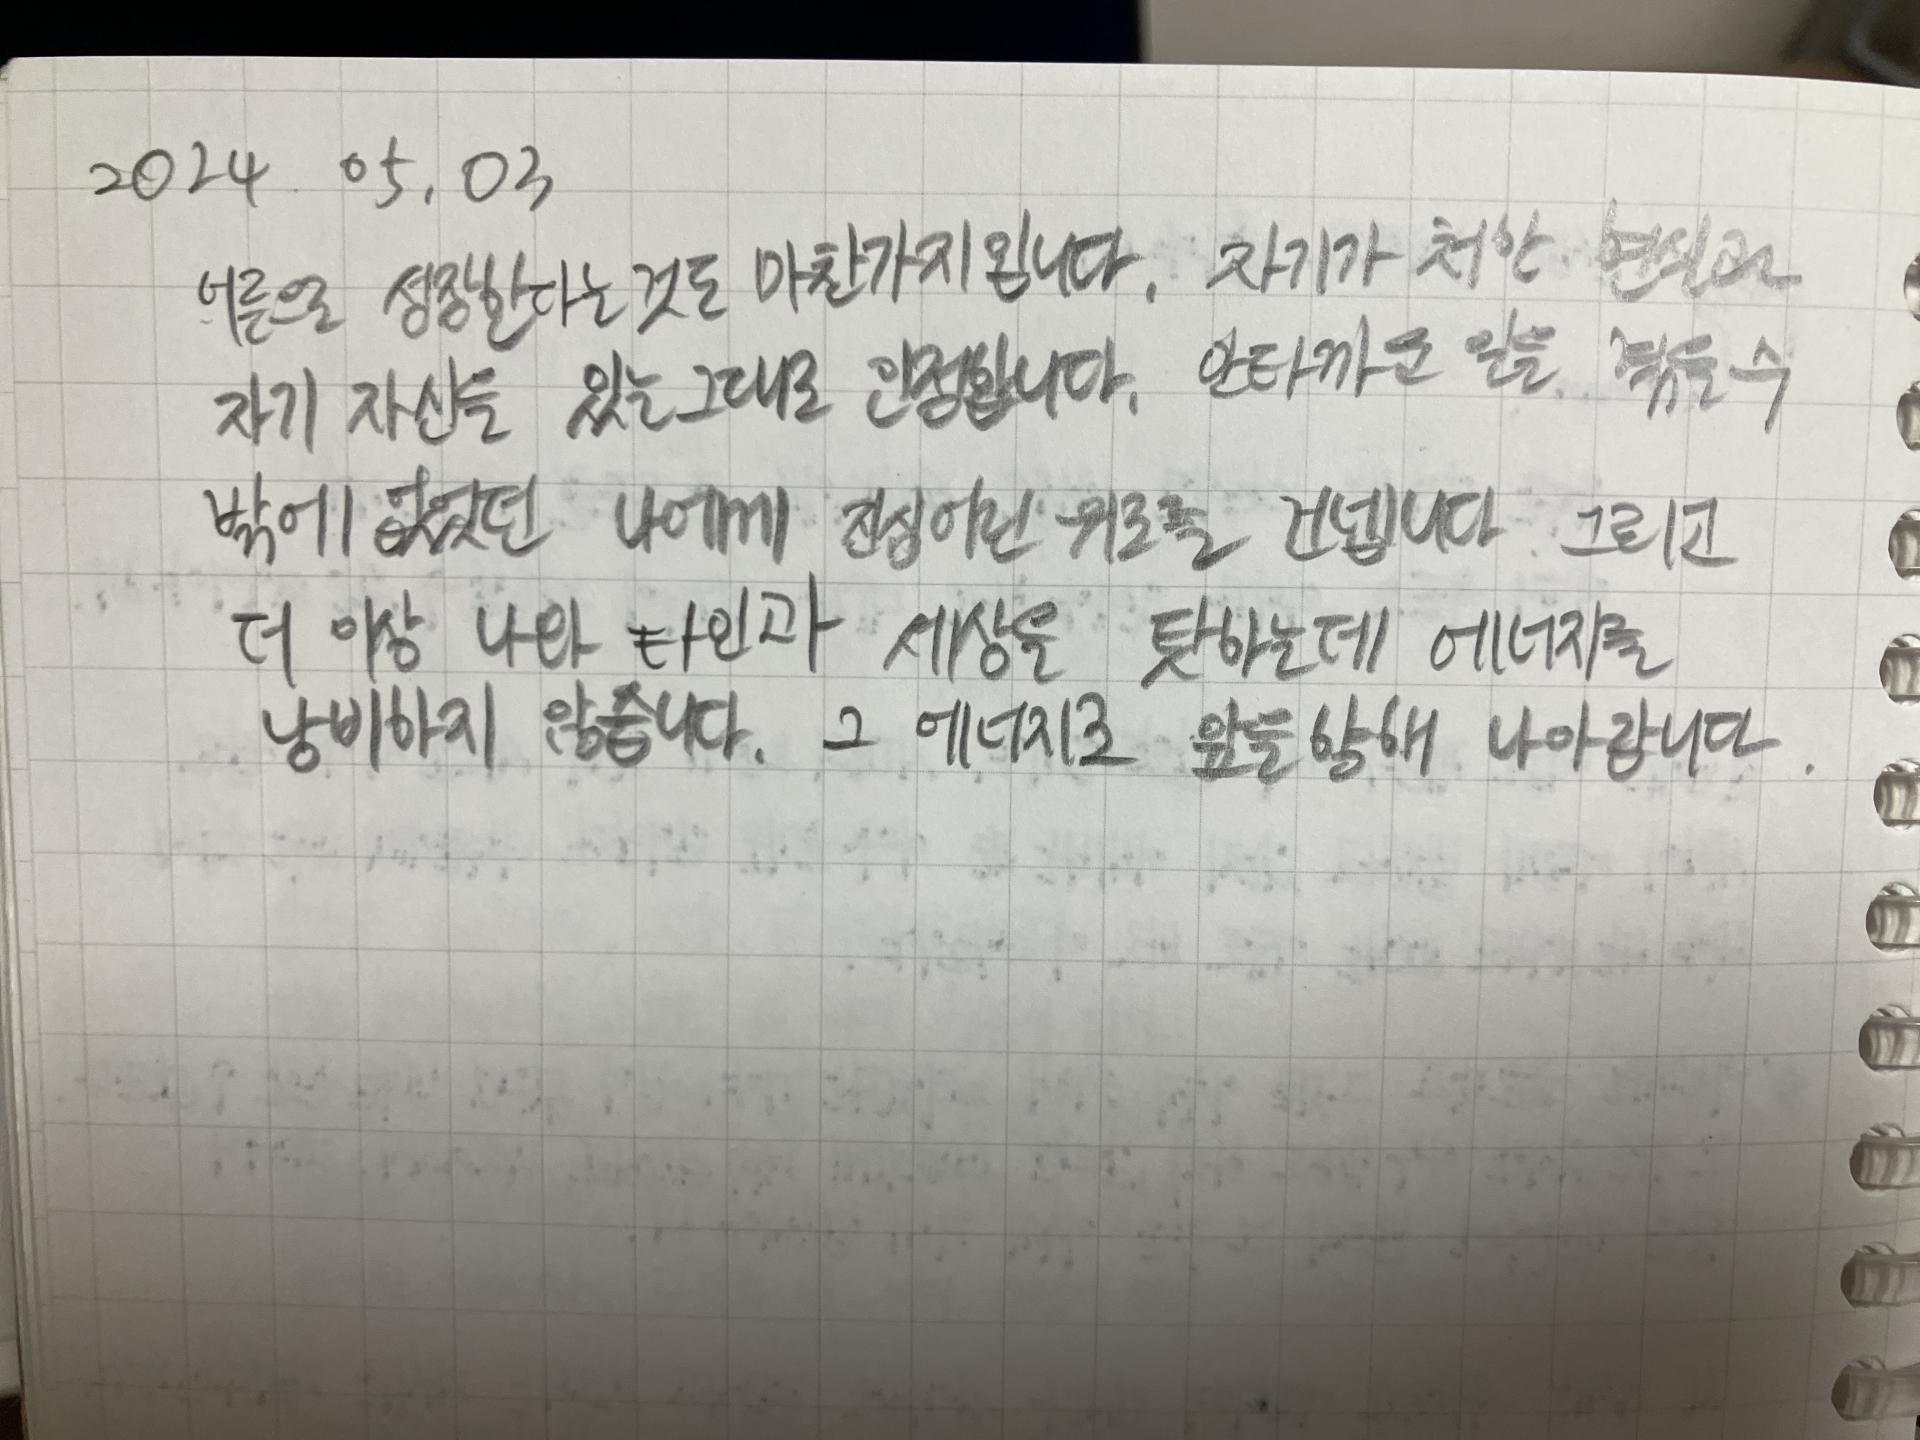 2024. 05. 03
어른으로 성장한다는 것도 마찬가지입니다. 자기가 처한 현실과
자기 자신을 있는그대로 인정합니다. 안타까운 일을 겪을 수
밖에 없었던 나에께 진심어린 위로를 건넵니다. 그리고
더 이상 나와 타인과 세상을 탓하는데 에너지를
낭비하지 않습니다. 그 에너지로 앞을 향해 나아갑니다.